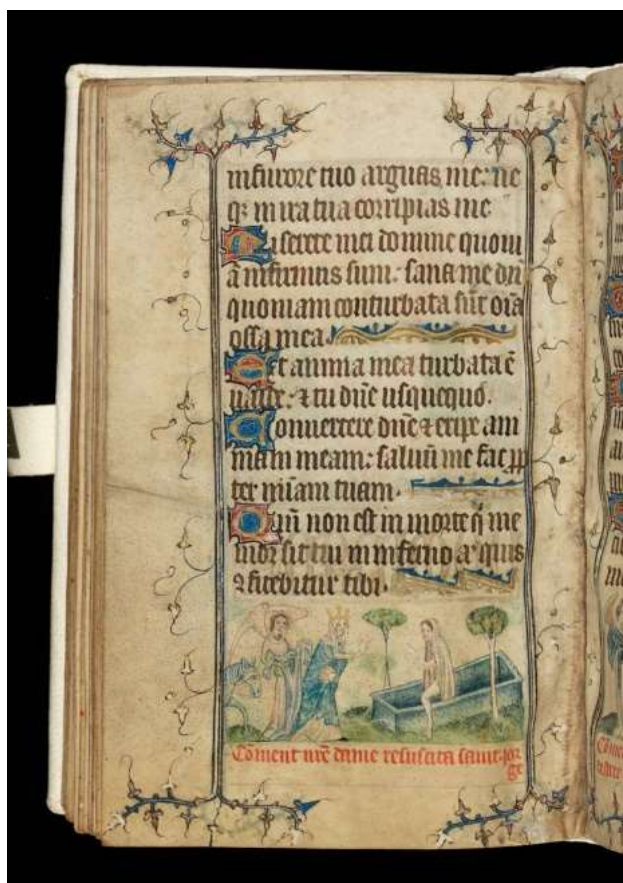 in furore tuo arguas me: ne
q3 in ira tua corripias me
Miserere mei domine quoni
a infirmus sum: sana me dn̄e
quoniam conturbata sūt oīa
ossa mea.
Et anima mea turbata ē
ualde: ⁊ tu dn̄e usquequo.
Conuertere dn̄e ⁊ eripe am
mam meam: saluū me fac ꝓp
ter mīam tuam.
Qm̄ non est in morte q̄ me
mor sit tui in inferno aū quis
ꝯfitebitur tibi.
Coment nr̄e dame resuscita saint jor
ge